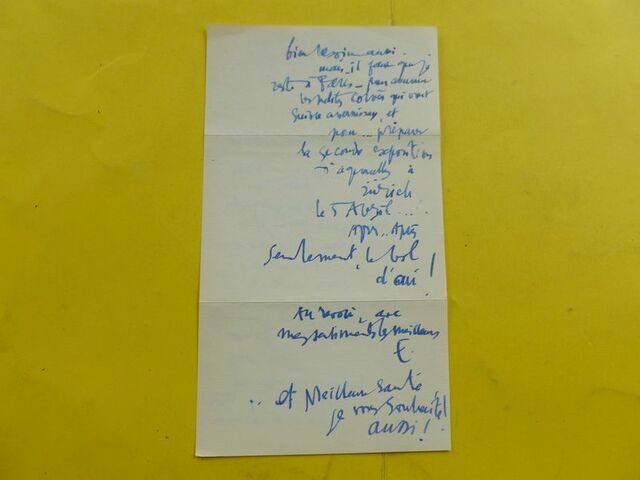 bien besoin aussi.
mais il faut que je
reste à Paris - pour
les petites corvées qui vont
suivre, et
pour... préparer
la seconde exposition
d'aquarelles à
Zürich
le 5 Avril...
Après.. Après
seulement, le bol
d'air!
Au revoir, avec
mes sentiments les meilleurs
E.
.. et Meilleure Santé
je vous souhaite
aussi!